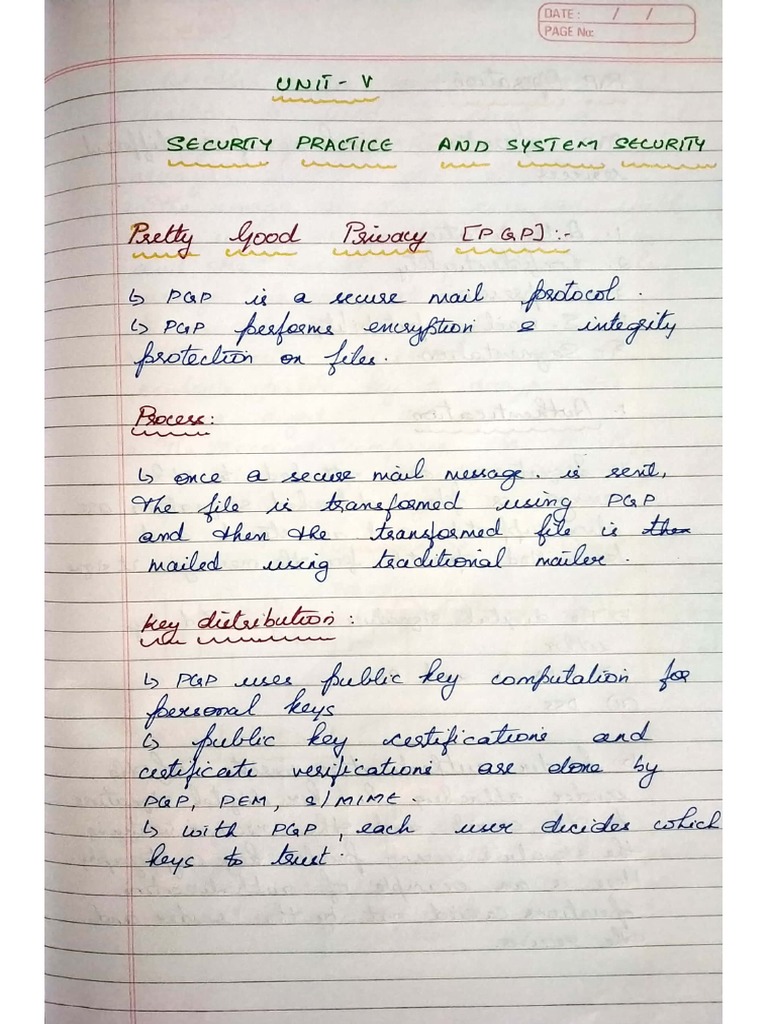 DATE: / /
PAGE No:
UNIT - V
SECURITY PRACTICE AND SYSTEM SECURITY
Pretty Good Privacy [PGP]:-
↳ PGP is a secure mail protocol.
↳ PGP performs encryption & integrity
protection on files.
Process:
↳ once a secure mail message. is sent,
the file is transformed using PGP
and then the transformed file is then
mailed using traditional mailer.
Key distribution:
↳ PGP uses public key computation for
personal keys
↳ public key certifications and
certificate verifications are done by
PGP, PEM, S/MIME.
↳ with PGP, each user decides which
keys to trust.